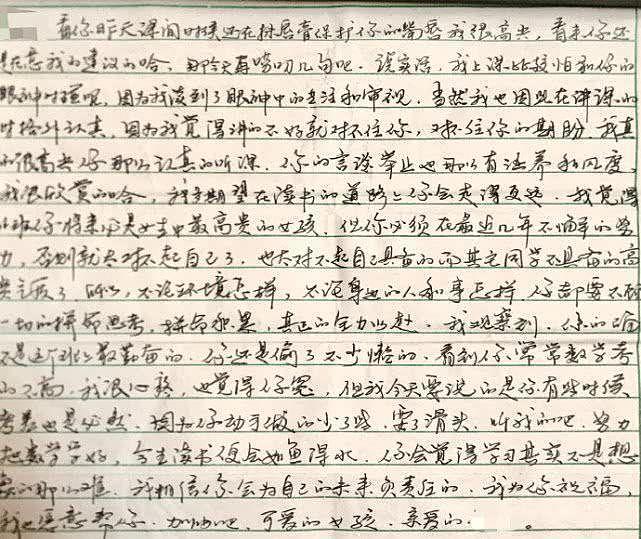 看你昨天课间时候还在抹唇膏保护你的嘴唇我很高兴，看来你还
是在意我的建议的哈、那今天再唠叨几句吧。说实话，我上课比较怕和你的
眼神对视呢，因为我读到了眼神中的专注和审视。当然我也因此在讲课的
时格外认真，因为我觉得讲的不好就对不住你，对不住你的期盼，我真
的很高兴你那么认真的听课。你的言谈举止也那么有涵养和风度，
我很欣赏的哈，我更期望在读书的道路上你会走得更远。我觉得
班你将来必是女生中最高贵的女孩。但你必须在最近几年不懈的努
力，否则就太对不起自己了，也太对不起自己具备的而其它同学不具备的高
贵气质了。所以，不论环境怎样，不论身边的人和事怎样，你都要不顾
一切的拼命思考，拼命积累，真正的全力以赴。我观察到，你的哈
不是这个班上最勤奋的。你还是偷了不少懒的。看到你常常数学考
的不高，我很心疼，也觉得你冤，但我今天要说的是你有些时候
考差也是必然，因为你动手做的少了些，耍了滑头。听我的吧，努力
把数学学好，今生读书便会如鱼得水。你会觉得学习其实不是想
象的那么难。我相信你会为自己的未来负责任的。我为你祝福，
我也愿意帮你。加油吧，可爱的女孩。亲爱的 。